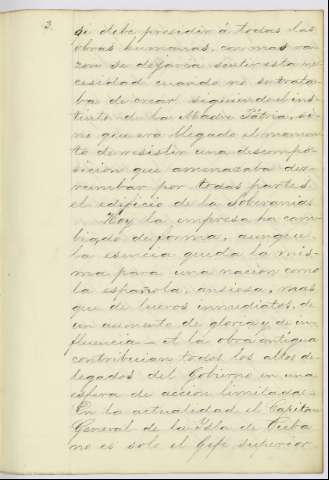 3.
si debe presidir á todas las
obras humanas, con mas ra-
zon se dejaria sentir esta ne-
cesidad cuando no se trata-
ba de crear siguiendo el ins-
tinto de la Madre Pátria, si-
no que era llegado el momen-
to de resistir una descompo-
sicion que amenazaba der-
rumbar por todas partes
el edificio de la Soberania.
Hoy la empresa ha cam-
biado de forma, aunque
la esencia queda la mis-
ma para una nacion como
la española, ansiosa, mas
que de lucros inmediatos, de
un aumento de gloria y de in-
fluencia. A la obra antigua
contribuian todos los altos de-
legados del Gobierno en una
esfera de accion limitada.
En la actualidad el Capitan
General de la Isla de Cuba
no es solo el Gefe superior